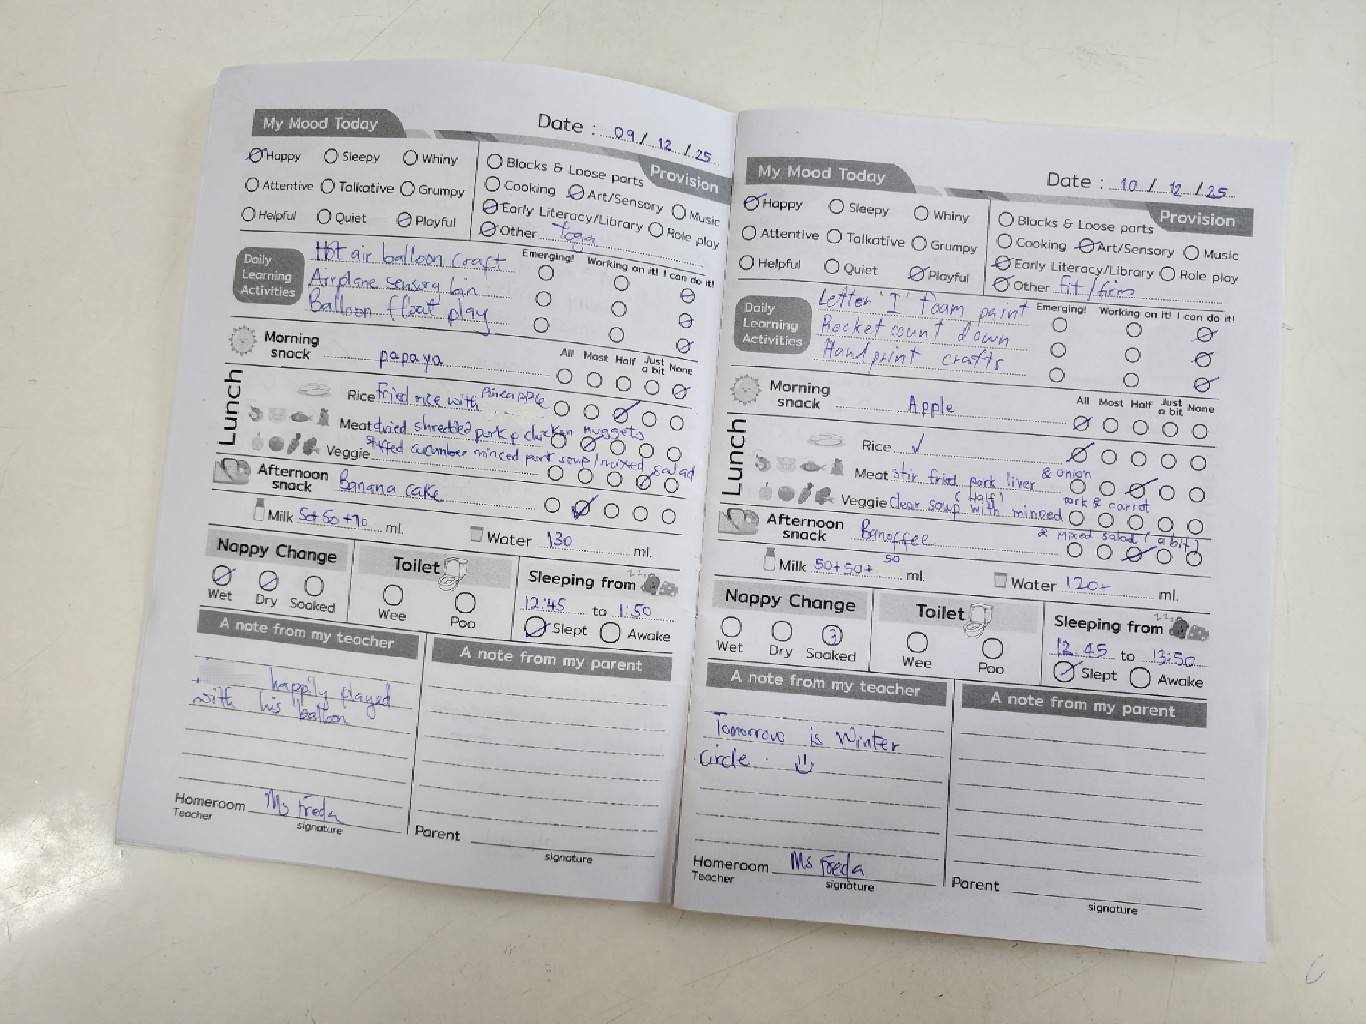 My Mood Today
Date : 09 / 12 / 25
Happy Sleepy Whiny
Attentive Talkative Grumpy
Helpful Quiet Playful
Provision
Blocks & Loose parts
Cooking Art/Sensory Music
Early Literacy/Library Role play
Other Yoga
Daily Learning Activities
Emerging! Working on it! I can do it!
Hot air balloon craft
Airplane sensory bin
Balloon float play
Morning snack papaya
All Most Half Just a bit None
Lunch
Rice Fried rice with Pineapple
Meat dried shredded pork & chicken nuggets
Veggie Stuffed cucumber minced pork soup / mixed salad
Afternoon snack Banana cake
Milk 50+50+70 ml. Water 130 ml.
Nappy Change
Wet Dry Soaked
Toilet
Wee Poo
Sleeping from
12:45 to 1:50
Slept Awake
A note from my teacher
happily played
with his balloon
Homeroom Teacher Ms Freda
signature
A note from my parent
Parent
signature
My Mood Today
Date : 10 / 12 / 25
Happy Sleepy Whiny
Attentive Talkative Grumpy
Helpful Quiet Playful
Provision
Blocks & Loose parts
Cooking Art/Sensory Music
Early Literacy/Library Role play
Other fit/firm
Daily Learning Activities
Emerging! Working on it! I can do it!
Letter 'I' foam paint
Rocket count down
Handprint crafts
Morning snack Apple
All Most Half Just a bit None
Lunch
Rice ✓
Meat Stir fried pork liver & onion
(Half)
Veggie Clear soup with minced pork & carrot
& mixed salad (a bit)
Afternoon snack Banoffee
Milk 50+50+50 ml. Water 120 ml.
Nappy Change
Wet Dry Soaked
Toilet
Wee Poo
Sleeping from
12.45 to 13:50
Slept Awake
A note from my teacher
Tomorrow is Winter
Circle.
Homeroom Teacher Ms Freda
signature
A note from my parent
Parent
signature